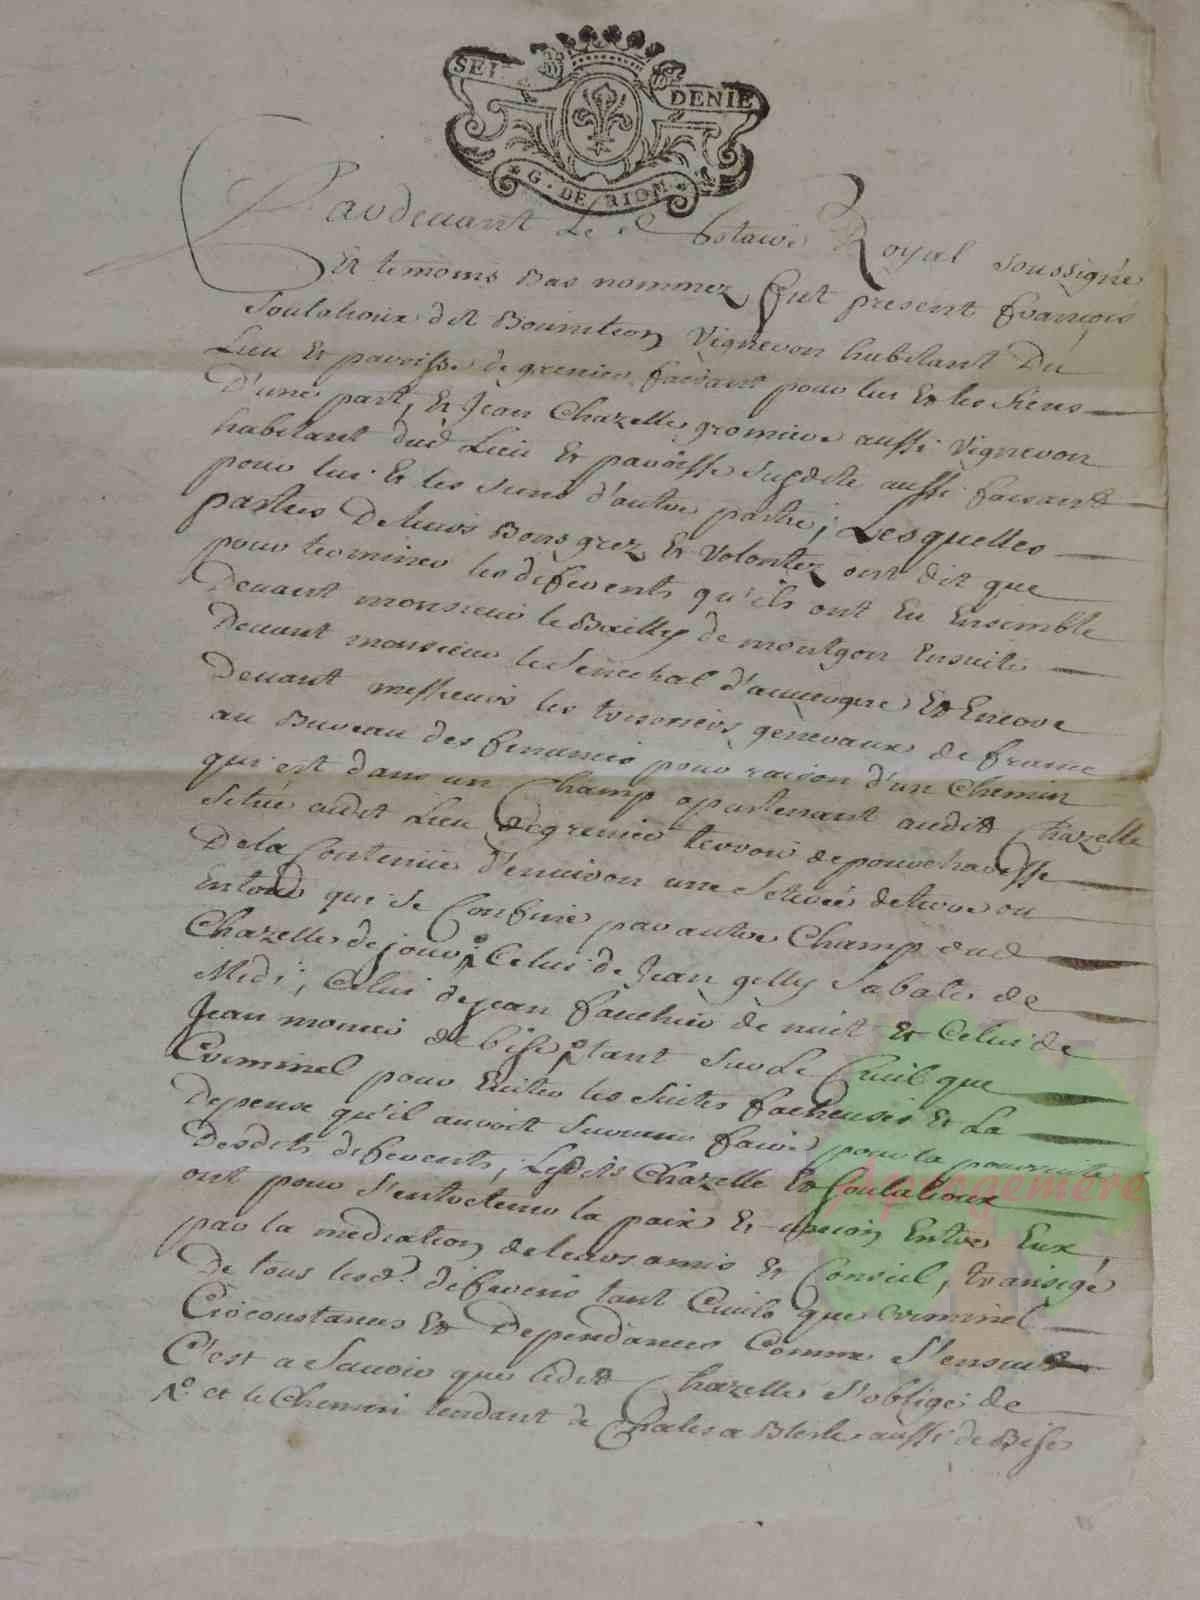 SEI DENIE
G. DE RIOM
Pardevant Le Notaire Royal soussigné
Et temoins Bas nommez, fut present françois
dit Bourniton Vigneron habitant Du
Lieu Et paroisse de grenier faisant pour lui Et les siens
D'une part, Et Jean Chazelle gromier aussi Vigneron
habitant dud Lieu Et paroisse susdite aussi faisant
pour lui Et les siens d'autre partie; Lesquelles
parties De leurs Bons grez Et Volontez ont dit que
pour terminer les diferents qu'ils ont Eu Ensemble
Devant monsieur le Bailly de montgon Ensuite
Devant monsieur le Senechal d'auvergne Et Encore
Devant messieurs les tresoriers generaux de france
au Bureau des finances pour raison d'un Chemin
qui est dans un Champ apartenant audit Chazelle
situé audit Lieu de grenier terroir de
De la Contenüe d'environ une Seterée de terre ou
Entour qui se Confine par autre Champ dud
Chazelle de jour; Celui de Jean gilly Sabatier de
Midi; Celui de jean fauchier de nuit Et Celui de
Jean monier de bise, tant sur Le Civil que
Criminel pour Eviter les suites facheuses Et La
depense qu'il auroit faire pour la poursuite
Desdits diferents; Lesdits Chazelle Et
ont pour s'entretenir la paix Et union Entre Eux,
par la mediation de leurs amis Et Conseil, transigé
De tous lesd. diferents tant Civils que Criminel
Circonstances Et Dependances Comme s'ensuit
C'est a Savoir que ledit Chazelle s'oblige de
et le Chemin tendant de Chales a Blesle aussi de Bise
Aprogemere